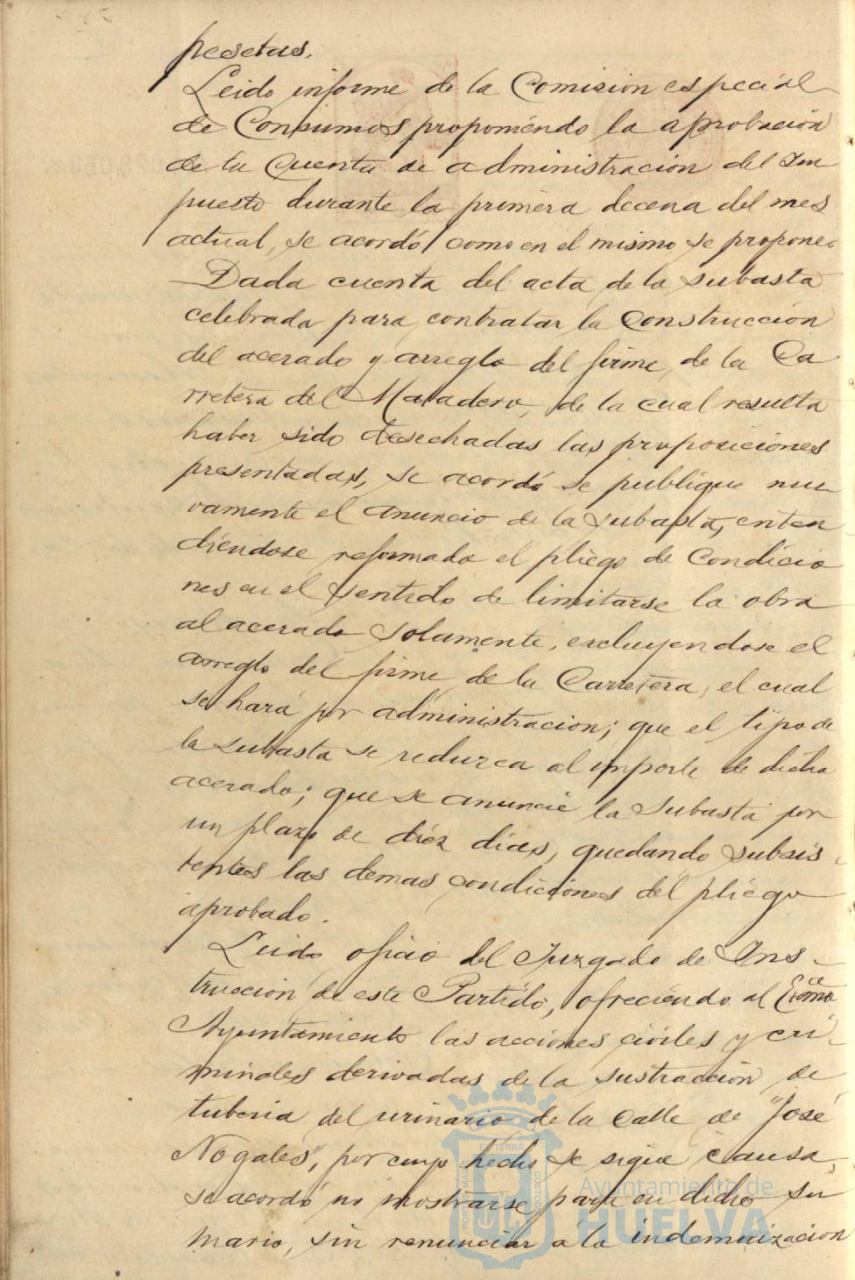 pesetas.
Leido informe de la Comision especial
de Consumos proponiendo la aprobación
de la Cuenta de administración del Im
puesto durante la primera decena del mes
actual, se acordó como en el mismo se propone.
Dada cuenta del acta de la subasta
celebrada para contratar la Construcción
del acerado y arreglo del firme de la Ca
rretera del Matadero, de la cual resulta
haber sido desechadas las proposiciones
presentadas, se acordó se publique nue
vamente el anuncio de la subasta, enten
diéndose reformado el pliego de Condicio
nes en el sentido de limitarse la obra
al acerado solamente, excluyendose el
arreglo del firme de la Carretera, el cual
se hará por administración; que el tipo de
la subasta se reduzca al importe de dicho
acerado; que se anuncie la Subasta por
un plazo de diéz dias, quedando subsis-
tentes las demas condiciones del pliego
aprobado.
Leido oficio del Juzgado de Ins-
trucción de este Partido, ofreciendo al Excmo
Ayuntamiento las acciones civiles y cri-
minales derivadas de la sustracción de
tuberia del urinario de la Calle de "José
Nogales", por cuyo hecho se sigue causa,
se acordó no mostrarse parte en dicho su
mario, sin renunciar a la indemnización
Ayuntamiento de
HUELVA